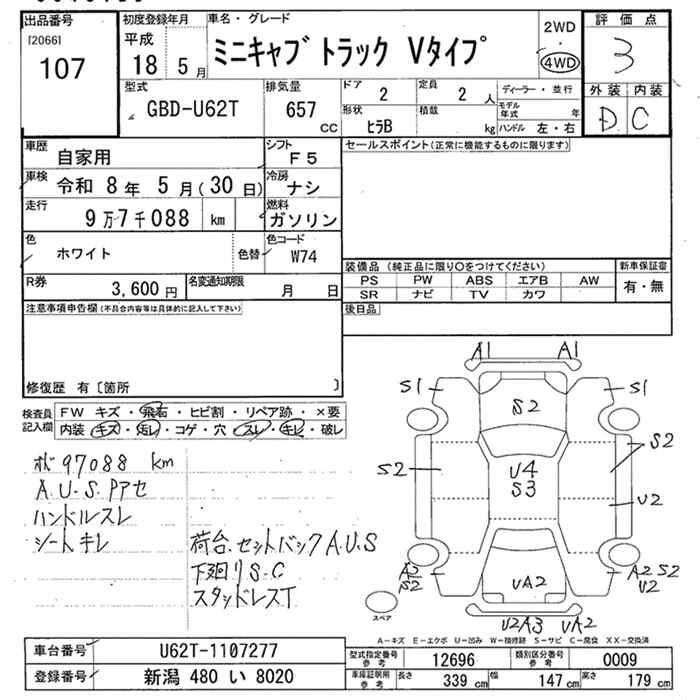 出品番号
[2066]
107
初度登録年月
平成
18 5 月
車名・グレード
ミニキャブ トラック Vタイプ
2WD
4WD
評価点
3
外装 内装
D C
型式
GBD-U62T
排気量
657
cc
ドア
2
定員
2 人
形状
ヒラB
積載
kg
ディーラー・並行
モデル年式 年
ハンドル 左・右
車歴
自家用
シフト
F5
車検
令和 8年 5月(30日)
冷房
ナシ
走行
9万7千088 km
燃料
ガソリン
色
ホワイト
色替
色コード
W74
R券
3,600 円
名変通知期限
月 日
セールスポイント(正常に機能するものに限ります)
装備品 (純正品に限り〇をつけてください)
PS PW ABS エアB AW
SR ナビ TV カワ
新車保証書
有・無
後日品
注意事項申告欄(不具合内容等は具体的に記入して下さい)
修復歴 有〔箇所 〕
検査員記入欄
FW キズ・飛石・ヒビ割・リペア跡・×要
内装 キズ・汚レ・コゲ・穴・スレ・キレ・破レ
97088 km
A.U.S.Pアセ
ハンドルスレ
シートキレ
荷台.セットバックA.U.S
下廻りS.C
スタッドレスT
A1 A1
S1 S1
S2
S2 S2
U4
S3
U2
A2 S2
U2
UA2
U2A3 UA2
スペア
A-キズ E-エクボ U-凹み W-補修跡 S-サビ C-腐食 XX-交換済
車台番号
U62T-1107277
登録番号
新潟 480 い 8020
型式指定番号
参考
12696
類別区分番号
参考
0009
車庫証明用
参考
長さ
339 cm
幅
147 cm
高さ
179 cm